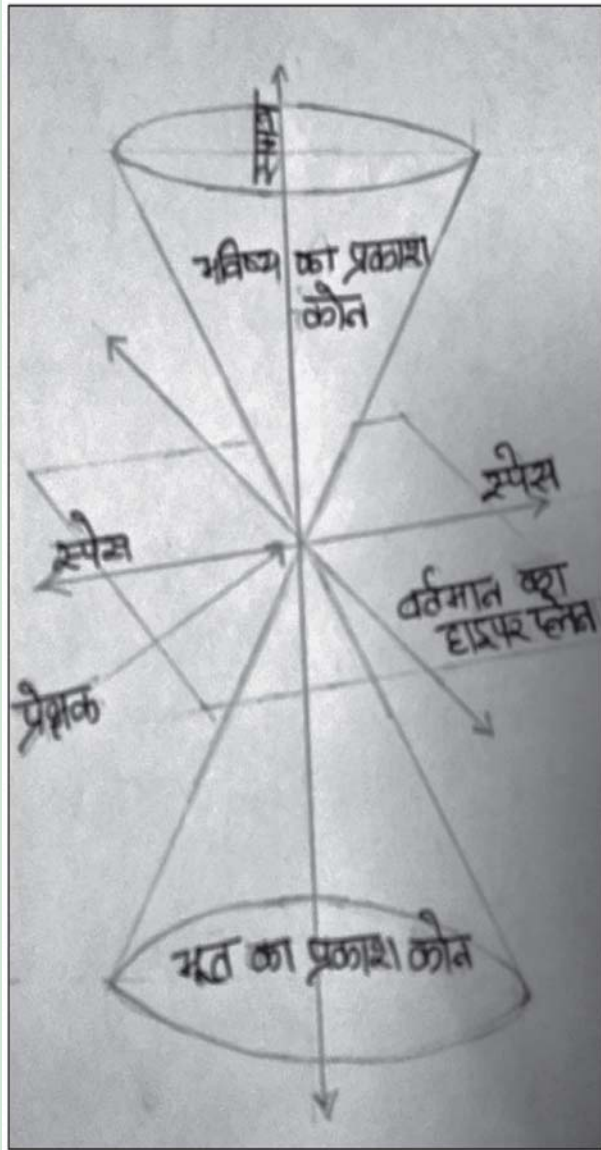 समय
भविष्य का प्रकाश
कोन
स्पेस
स्पेस
वर्तमान का
हाइपर प्लेन
प्रेक्षक
भूत का प्रकाश कोन